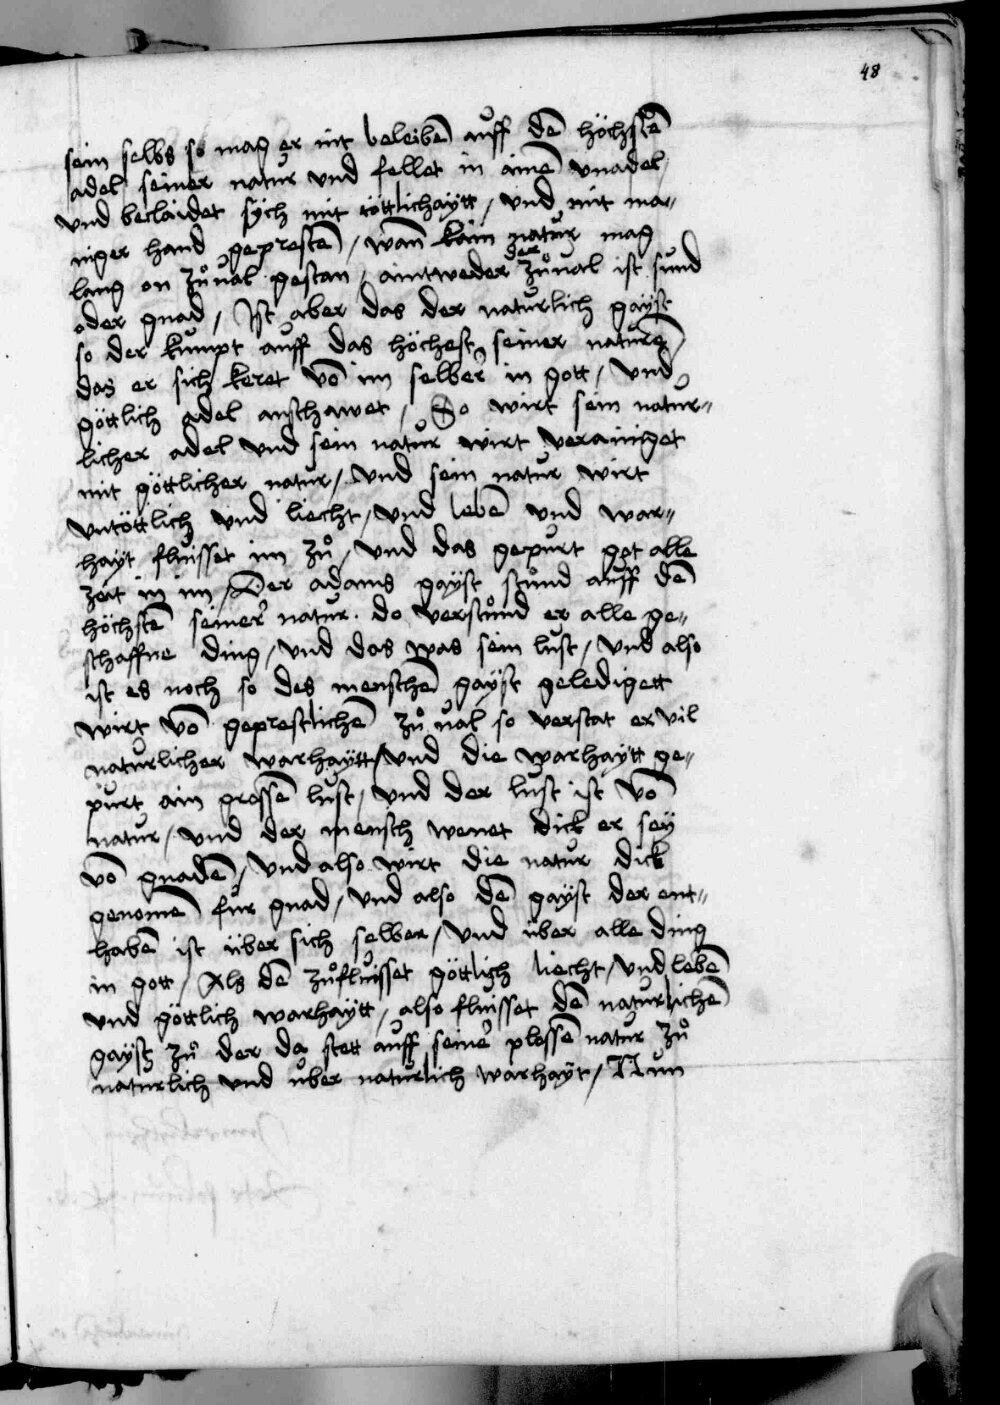 48
sein selbs so mag er nit beleibē auff dē höchstē
adel seiner natur vnd fellet in ainē vnadel
vnd beclaidet sych mit töttlichaÿtt / vnd mit ma„
niger hand geprestē / wañ kain natur mag
lang on zů ual gestan / aintweder der zů ual ist sund
oder gnad / Ist aber das der naturlich gaÿst
so der kumpt auff das höchest seiner naturē
das er sich keret vō im selber in gott / vnd
göttlich adel anschawet / So wirt sein natur„
licher adel vnd sein natur wirt verainiget
mit göttlicher natur / vnd sein natur wirt
vntöttlich vnd liecht / vnd lebē vnd war„
haÿt flüsset im zů / vnd das gepurt got alle
zeit in im / Der adams gaÿst stůnd auff dē
höchstē seiner natur . do verstůnd er alle ge„
schaffne ding / vnd das was sein lust / vnd also
ist es noch so des menschē gaÿst geledigett
wirt vō geprestlichē zů ual so verstat er vil
naturlicher warhaÿtt / vnd die warhaÿtt ge„
purt ain grossē lust / vnd der lust ist vō
natur / vnd der mensch wenet dick er seÿ
vō gnadē / vnd also wirt die natur dick
genomē fur gnad / vnd also dē gaÿst der ent„
habē ist über sich selber / vnd über alle ding
in gott / Als dē zůflüsset göttlich liecht / vnd lebē
vnd göttlich warhaÿtt / also flüsset dē naturlichē
gaÿst zů der da stett auff seiner plossē natur zů
naturlich vnd über naturlich warhaÿt / Nun